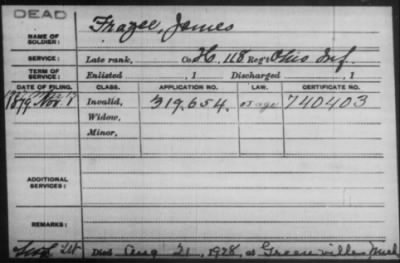 DEAD
NAME OF SOLDIER: Frazee, James
SERVICE: Late rank, Co. H, 118 Reg't Ohio Inf.
TERM OF SERVICE: Enlisted , 1 Discharged , 1
DATE OF FILING. CLASS. APPLICATION NO. LAW. CERTIFICATE NO.
1879 Nov. 7 Invalid, 319,654. 740403
Widow,
Minor,
ADDITIONAL SERVICES:
REMARKS:
Died Aug 21, 1928, at Greenville Mich